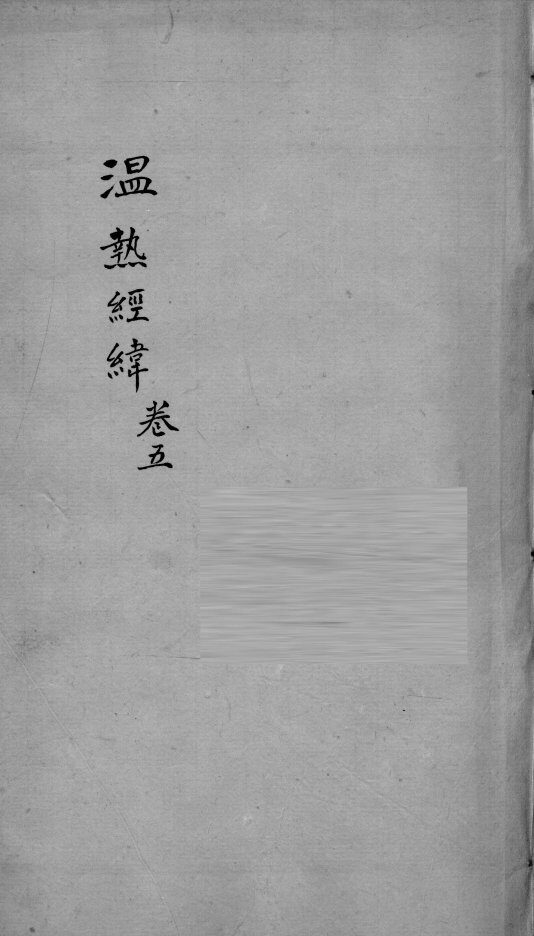 温熱經緯
卷五